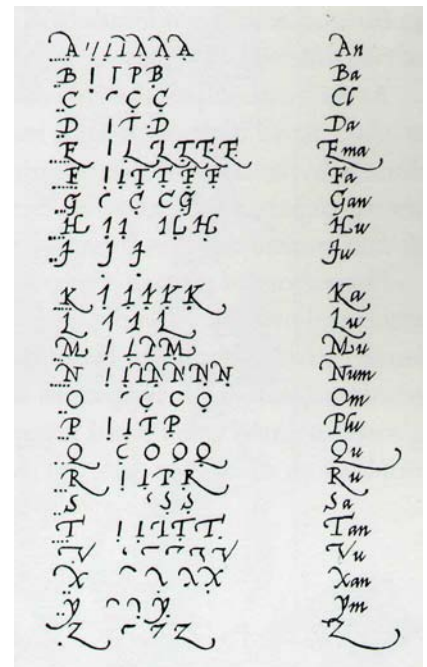 A A An
B P B Ba
C C C Cl
D T D Da
E T F E Ema
F T T F F Fa
G C C C G Gan
H H Hu
J J J Ju
K K Ka
L L Lu
M M Mu
N N N N Num
O C C O Om
P T P Plu
Q C O O Q Qu
R T P R Ru
S S S Sa
T T T Tan
V V Vu
X X Xan
Y Y Ym
Z Z Z